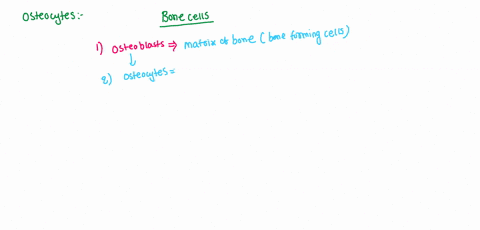 Osteocytes:-
Bone cells
1) Osteoblasts ⇒ matrix of bone (bone forming cells)
↓
2) Osteocytes =